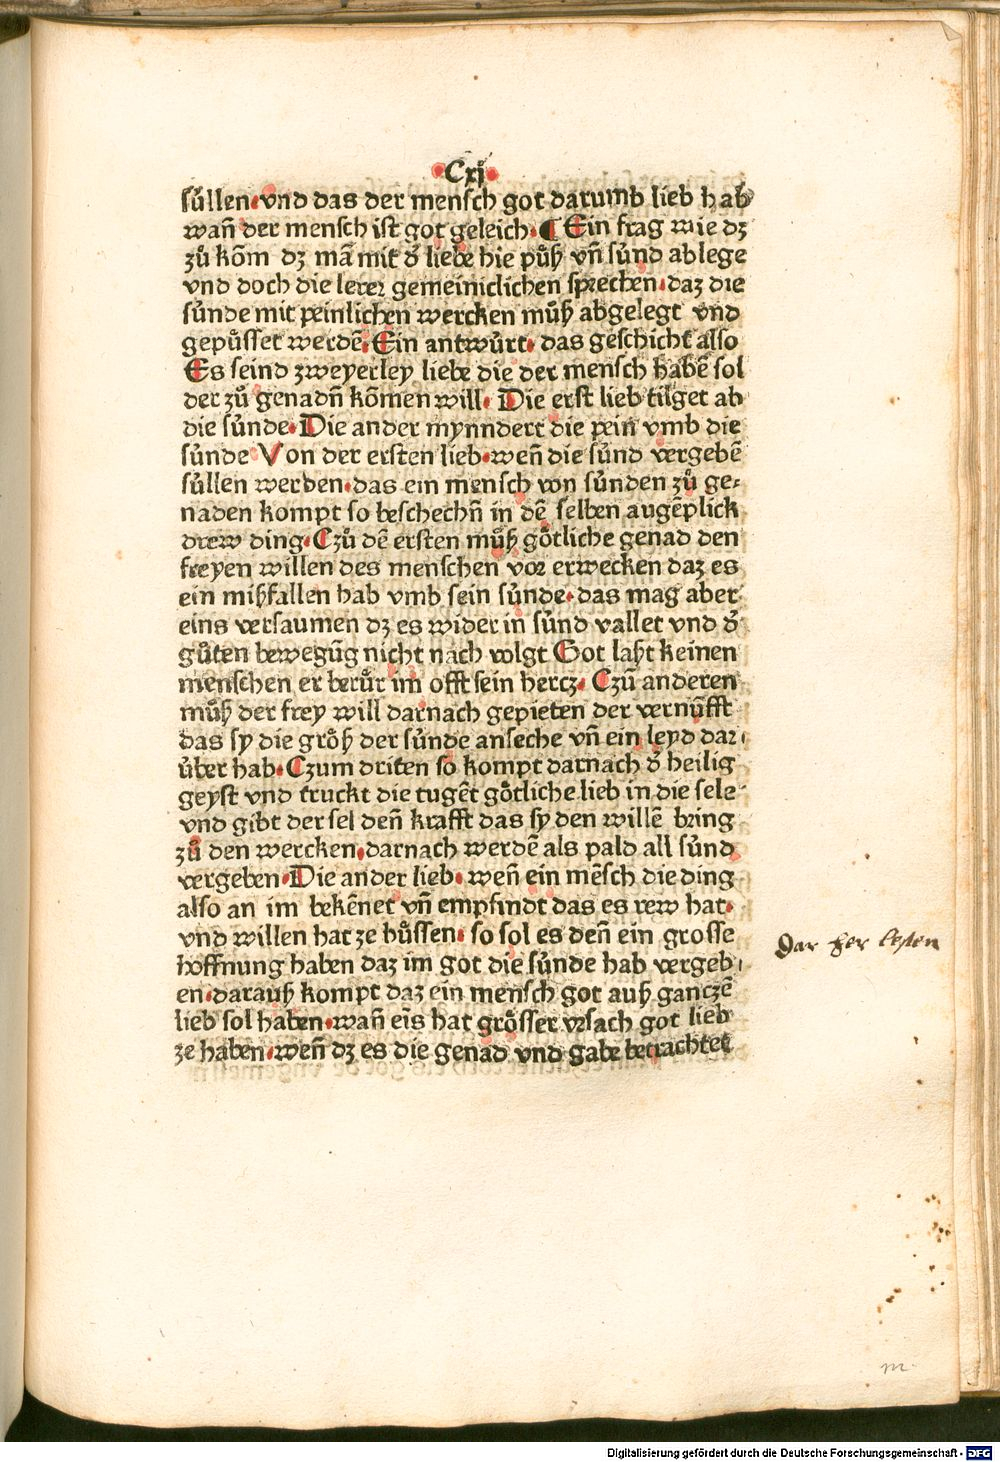 ·Cxj·
süllen·vnd das der mensch got darumb lieb hab
wañ der mensch ist got geleich·¶ Ein frag wie dz
zů kõm dz mã mit d̾ liebe hie půß vñ sünd ablege
vnd doch die lerer gemeiniclichen sprechen·daz die
sünde mit peinlichen wercken můß abgelegt vnd
gepüsset werdẽ·Ein antwürt·das geschicht also
Es seind zweyerley liebe die der mensch habẽ sol
der zů genadñ kõmen will·Die erst lieb tilget ab
die sünde·Die ander mynndert die pein vmb die
sünde Von der ersten lieb·weñ die sünd vergebẽ
süllen werden·das ein mensch von sünden zů ge⸗
naden kompt so beschechñ in dẽ selben augẽplick
drew ding·Czů dẽ ersten můß götliche genad den
freyen willen des menschen vor erwecken daz es
ein mißfallen hab vmb sein sünde·das mag aber
eins versaumen dz es wider in sünd vallet vnd d̾
gůten bewegũg nicht nach volgt Got laßt keinen
menschen er berůr im offt sein hercz·Czů anderen
můß der frey will darnach gepieten der vernüfft
das sy die größ der sünde anseche vñ ein leyd dar⸗
über hab·Czum driten so kompt darnach d̾ heilig
geyst vnd truckt die tugẽt götliche lieb in die sele
vnd gibt der sel deñ krafft das sy den willẽ bring
zů den wercken·darnach werdẽ als pald all sünd
vergeben·Die ander lieb·weñ ein mẽsch die ding
also an im bekẽnet vñ empfindt das es rew hat·
vnd willen hat ze büssen·so sol es deñ ein grosse
hoffnung haben daz im got die sünde hab vergeb⸗
en·darauß kompt daz ein mensch got auß ganczẽ
lieb sol haben·wañ eĩs hat grösser vrsach got lieb
ze haben·weñ dz es die genad vnd gabe betrachtet
Dar her lesten
m.
Digitalisierung gefördert durch die Deutsche Forschungsgemeinschaft - DFG